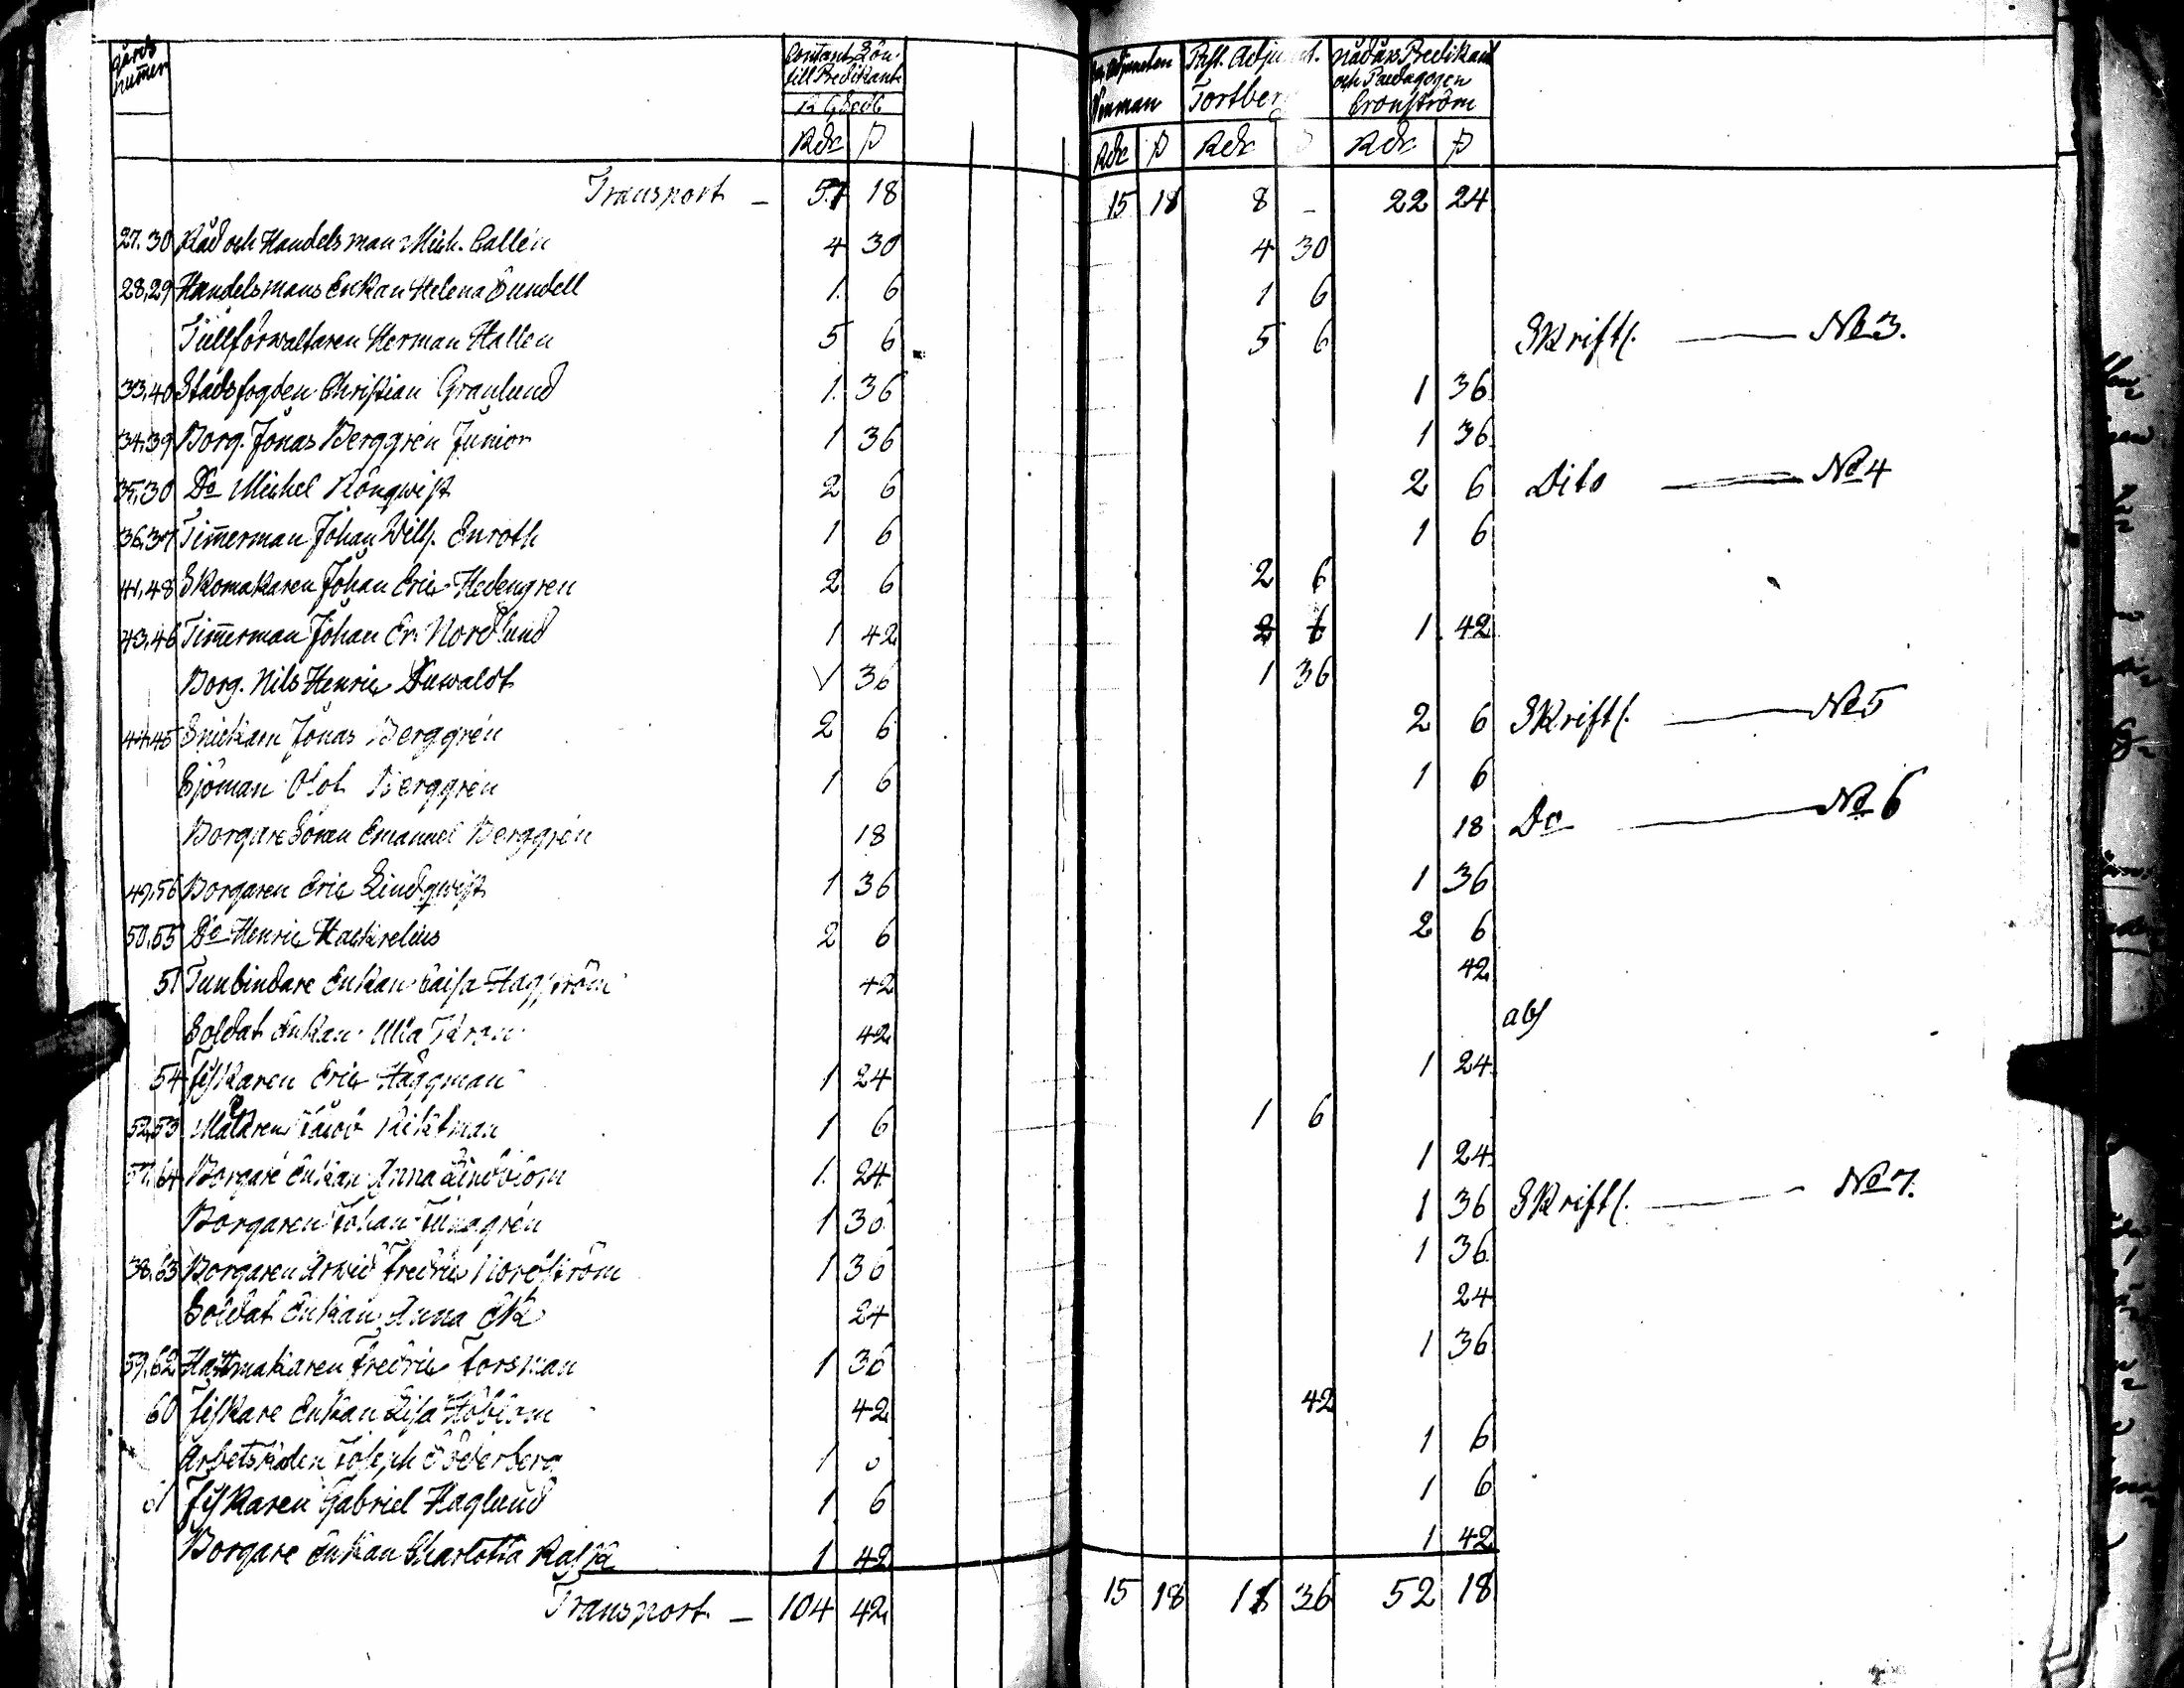 gårds nummer
Contant Lön till Predikant.
Past. Adjuncten Wenman
Past. Adjunct. Tortberg
nådårs Predikant och Paedagogen Cronström
Rdr β Rdr β Rdr Rdr β
Transport — 57 18 15 18 8 – 22 24
27.30 Råd och Handelsman Mich. Callén 4 30 4 30
28,29 Handelsmans Enkan Helena Sundell 1. 6 1 6
Tullförwaltaren Herman Hallen 5 6 5 6 Skriftl. — No 3.
33,40 Stadsfogden Christian Granlund 1. 36 1 36
34,39 Borg. Jonas Berggrén Junior 1 36 1 36
35,30 Do Michel Rönqwist 2 6 2 6 Dito — No 4
36,37 Timmerman Johan Wilh. Enroth 1 6 1 6
41,48 Skomakaren Johan Eric Hedengren 2 6 2 6
43,46 Timmerman Johan Er. Nordlund 1 42 2 6 1 42
Borg. Nils Henric Duwaldt 1 36 1 36
44,45 Snickarn Jonas Berggrén 2 6 2 6 Skriftl. — No 5
Sjöman Olof Berggrén 1 6 1 6
Borgare Sonen Emanuel Berggrén 18 18 Do — No 6
49,56 Borgaren Eric Lindqwist 1 36 1 36
50,55 Do Henric Hackzelius 2 6 2 6
51 Tunbindare Enkan Caisa Hagström 42 42
Soldat Enkan Ulla 42 abs
54 Fiskaren Eric Häggman 1 24 1 24
52,53 Målaren Jacob Riktman 1 6 1 6
57,64 Borgare Enkan Anna Lindblom 1. 24 1 24
Borgaren Johan Ljunggrén 1 36 1 36 Skriftl. — No 7.
58,63 Borgaren Arwid Fredric Nordström 1 36 1 36
Soldat Enkan Anna Ek 24 24
59,62 Hattmakaren Fredric Forsman 1 36 1 36
60 Fiskare Enkan Lisa 42 42
Arbetskarlen Joseph Söderberg 1 6 1 6
61 Fiskaren Gabriel Haglund 1 6 1 6
Borgare Enkan Charlotta Rask 1 42 1 42
Transport. — 104 42 15 18 36 52 18